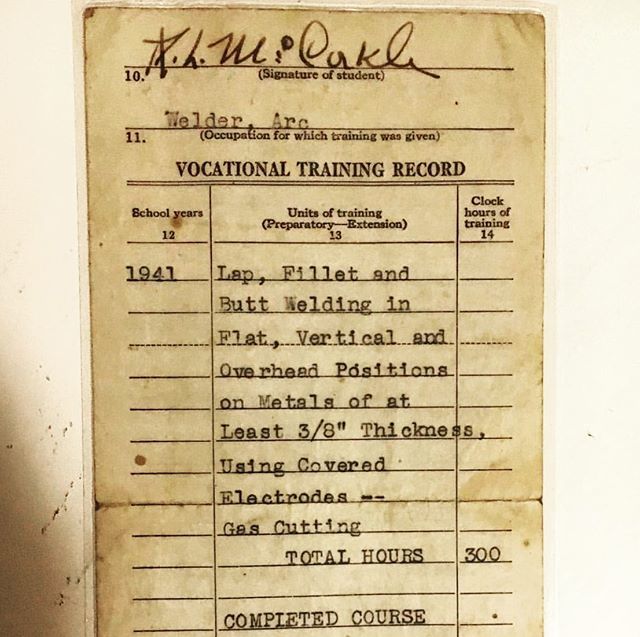 10. K.L. McCorkle
(Signature of student)
Welder, Arc
11. (Occupation for which training was given)
VOCATIONAL TRAINING RECORD
School years
12
Units of training
(Preparatory—Extension)
13
Clock
hours of
training
14
1941 Lap, Fillet and
Butt Welding in
Flat, Vertical and
Overhead Positions
on Metals of at
Least 3/8" Thickness,
Using Covered
Electrodes --
Gas Cutting
TOTAL HOURS 300
COMPLETED COURSE